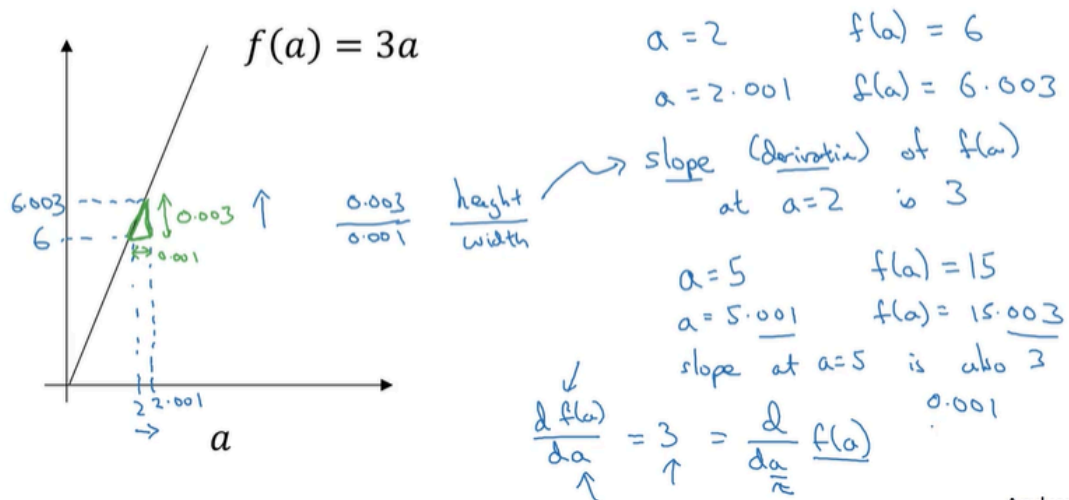 f(a) = 3a
6.003
6
0.003
0.001
2 2.001
a
0.003 height
0.001 width
a = 2 f(a) = 6
a = 2.001 f(a) = 6.003
slope (derivative) of f(a)
at a=2 is 3
a = 5 f(a) = 15
a = 5.001 f(a) = 15.003
slope at a=5 is also 3
0.001
d f(a) / da = 3 = d / da f(a)